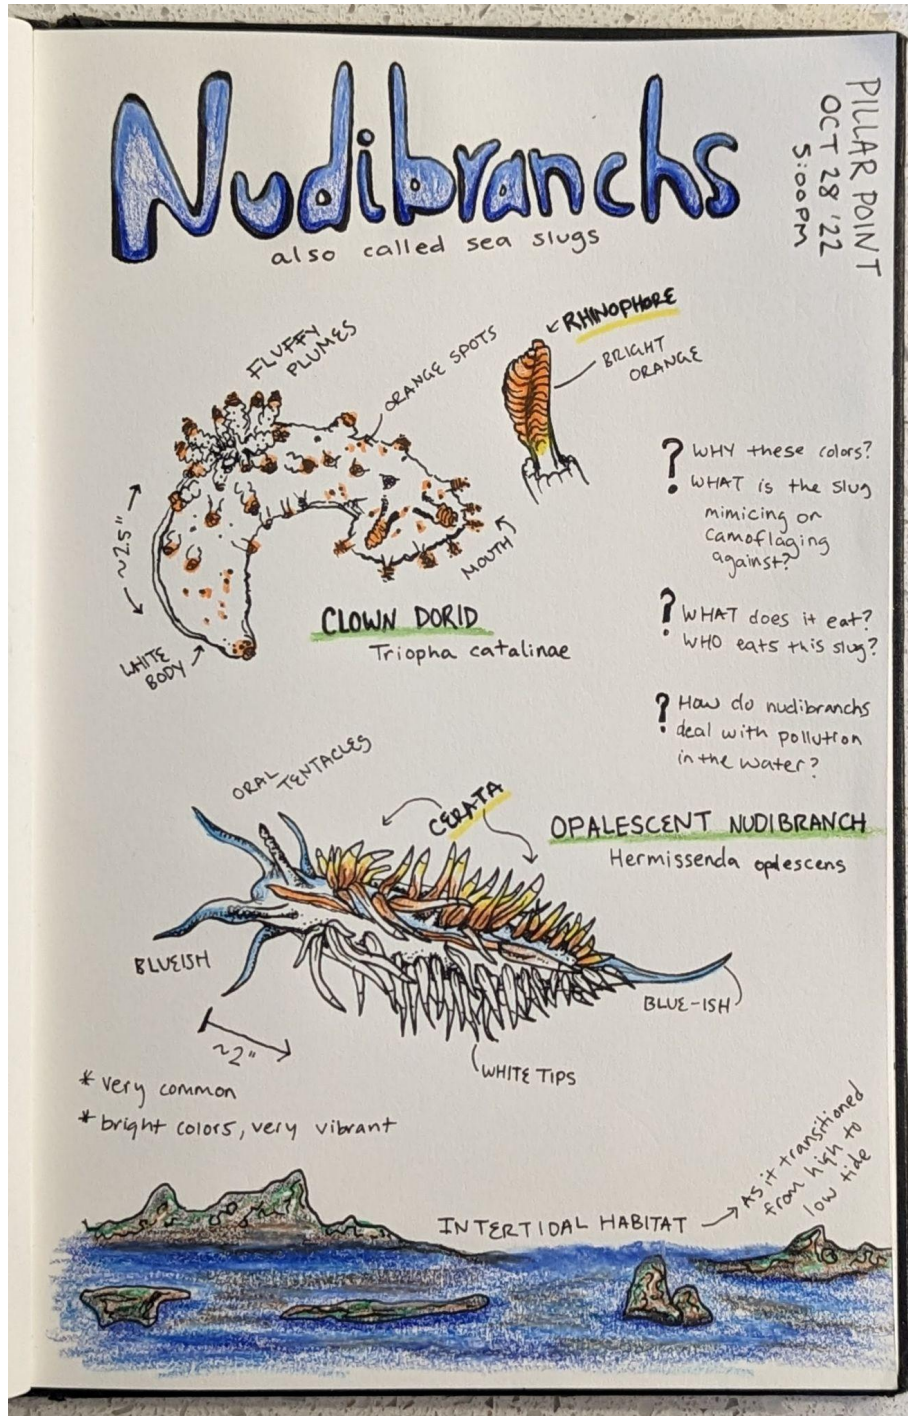 Nudibranchs
also called sea slugs
PILLAR POINT
OCT 28 '22
5:00PM
FLUFFY
PLUMES
ORANGE SPOTS
RHINOPHORE
BRIGHT
ORANGE
~2.5"
MOUTH
WHITE
BODY
CLOWN DORID
Triopha catalinae
? WHY these colors?
WHAT is the slug
mimicing or
camoflaging
against?
? WHAT does it eat?
WHO eats this slug?
? How do nudibranchs
deal with pollution
in the water?
ORAL
TENTACLES
CERATA
OPALESCENT NUDIBRANCH
Hermissenda opalescens
BLUEISH
BLUE-ISH
~2"
WHITE TIPS
* very common
* bright colors, very vibrant
INTERTIDAL HABITAT
As it transitioned
from high to
low tide